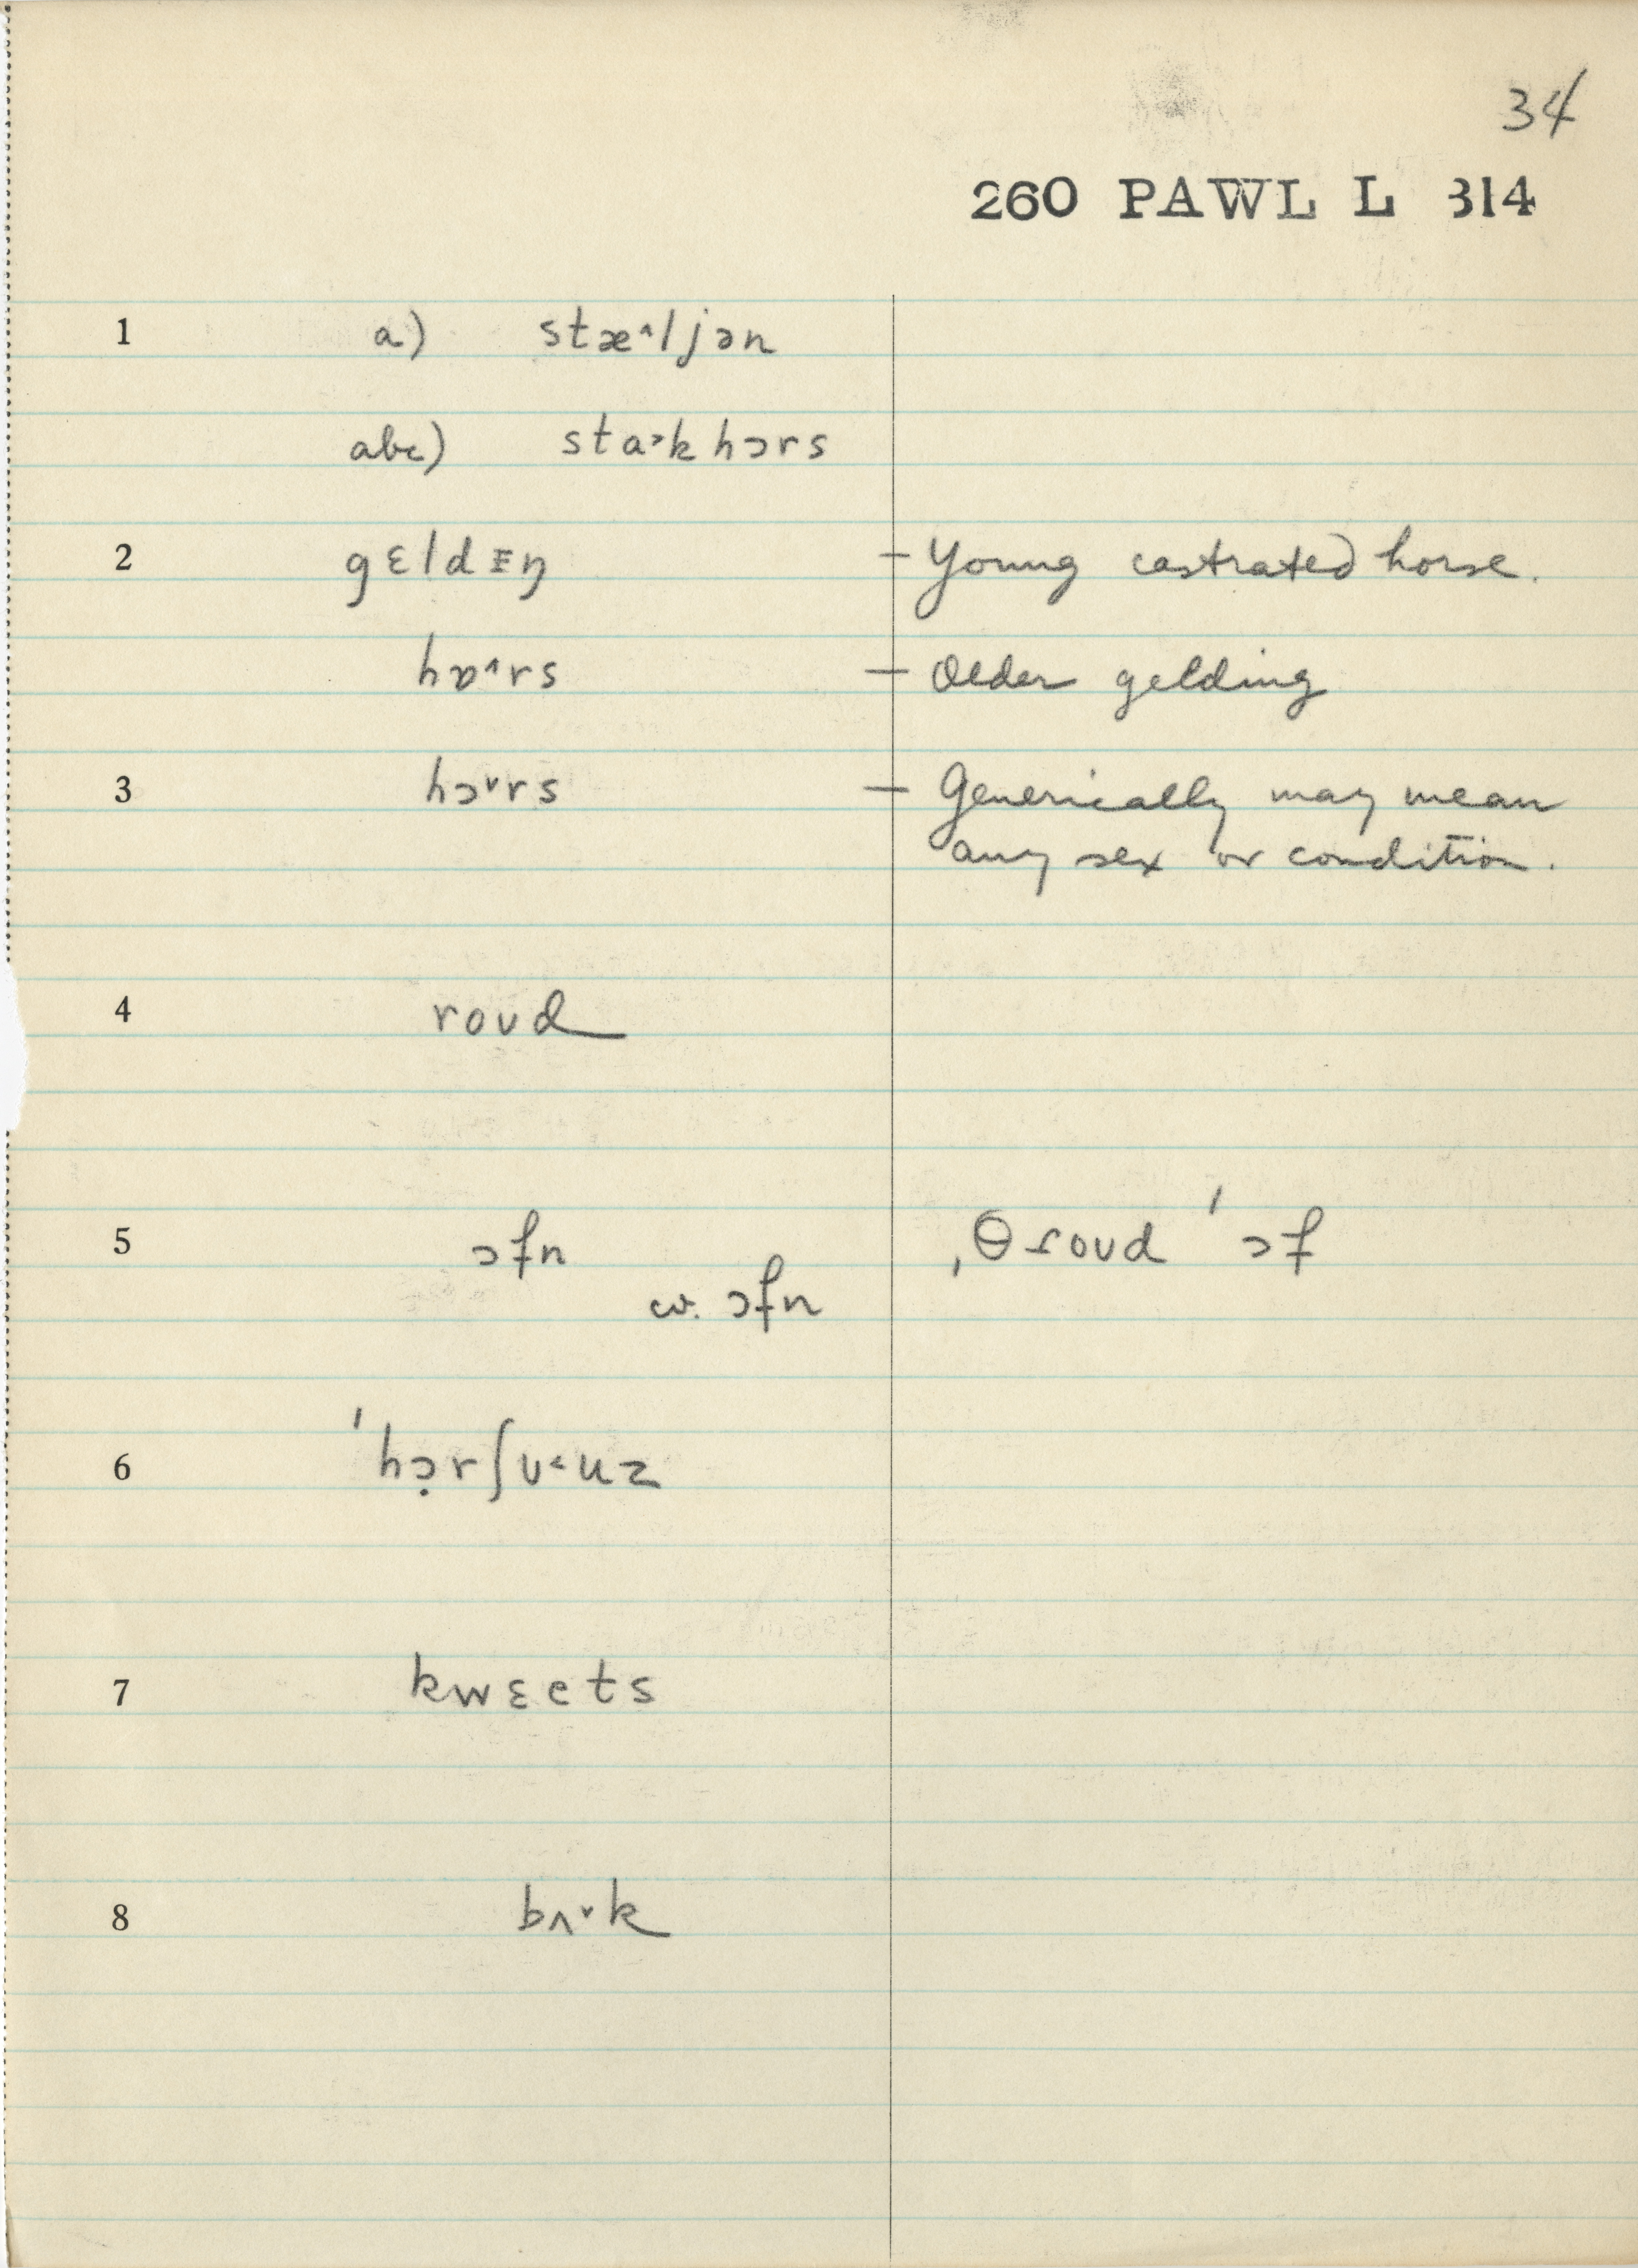 34
260 PAWL L 314
1 a) stæ˄ljən
abc) sta˃k hɔrs
2 gɛldᵻŋ – Young castrated horse.
hɒ˄rs – Older gelding
3 hɔ˅rs – Generically may mean
any sex or condition.
4 roʊd
5 ɔfn ˌθɾoʊd ˈɔf
cv. ɔfn
6 ˈhɔ̣rʃʊ˂uz
7 kwɛets
8 bʌ˅k